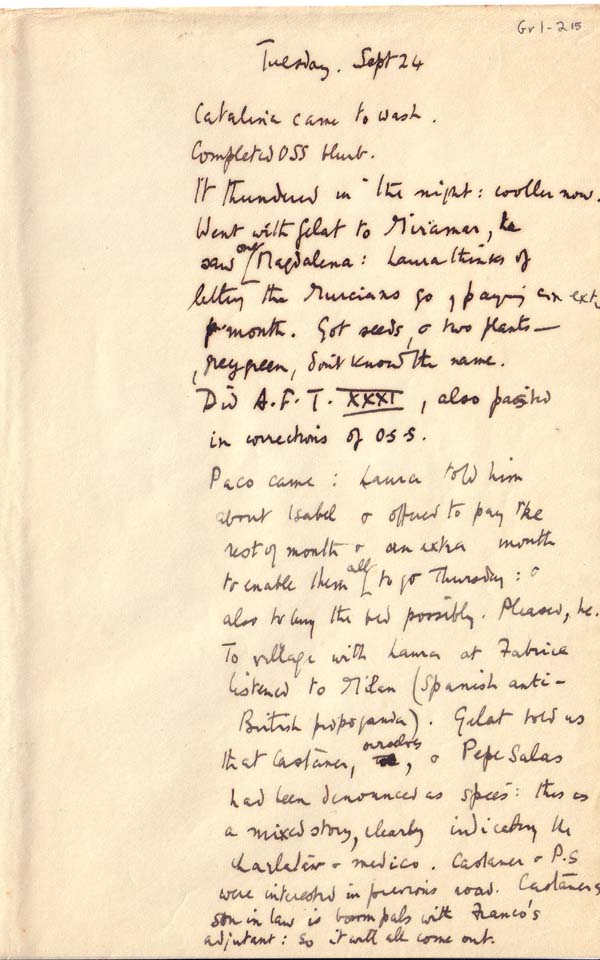 Gr 1-215
Tuesday. Sept 24
Catalina came to wash.
Completed OSS blurb.
It thundered in the night: cooller now.
Went with Gelat to Miramar, he
saw our Magdalena: Laura thinks of
letting the Murcians go, paying an extra
month. Got seeds, & two plants—
greygreen, don't know the name.
Did A.F.T. XXXI, also pasted
in corrections of O.S.S.
Paco came: Laura told him
about Isabel & offered to pay the
rest of month & an extra month
to enable them all to go Thursday: &
also to buy the bed possibly. Pleased, he.
To village with Laura at Fabrica
listened to Milan (Spanish anti-
British propoganda). Gelat told us
that Castañer, ourselves, & Pepe Salas
had been denounced as spies: this is
a mixed story, clearly indicating the
charlatán & medico. Castaner & P.S
were interested in previous road. Castañers
son in law is boom pals with Franco's
adjutant: so it will all come out.